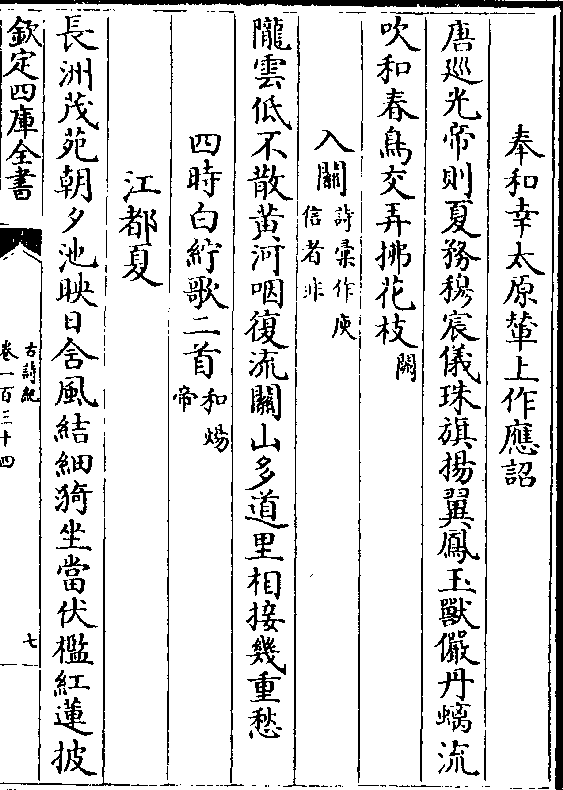 奉和幸太原輦上作應詔
唐廵光帝則夏務穆宸儀珠旗揚翼鳳玉獸儼丹螭流
吹和春鳥交弄拂花枝闕
入關詩彚作庾信者非
隴雲低不散黃河咽復流關山多道里相接幾重愁
四時白紵歌二首和煬帝
江都夏
長洲茂苑朝夕池映日含風結細漪坐當伏檻紅蓮披
欽定四庫全書
古詩紀
卷一百三十四
七